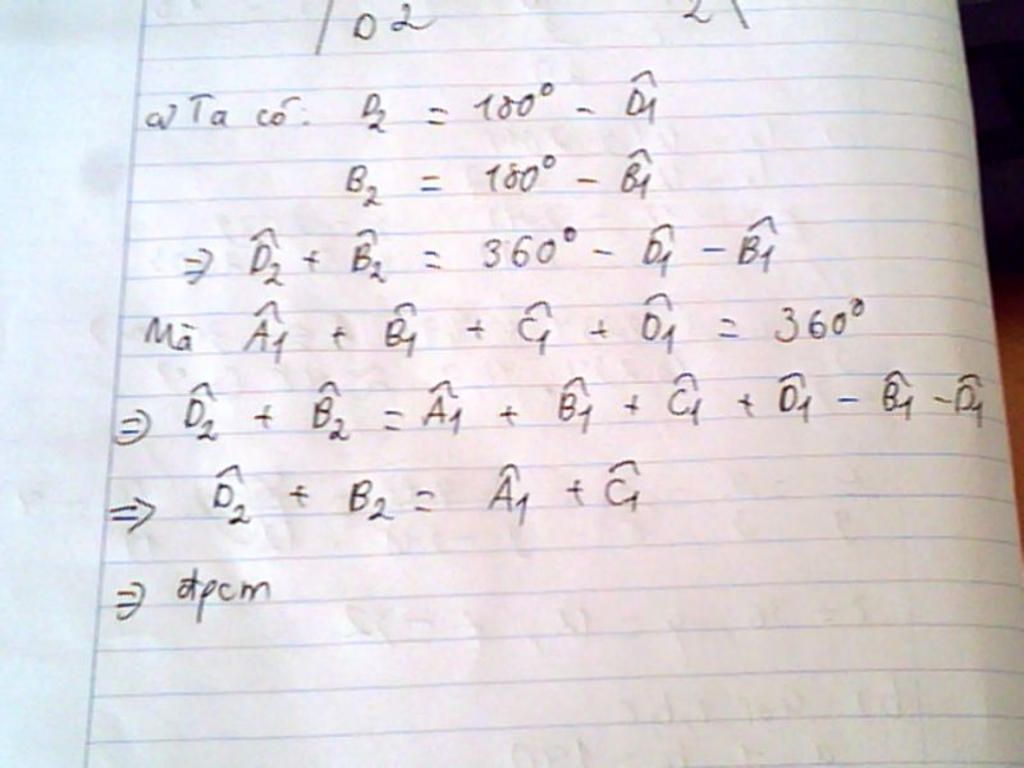 D2 2
a) Ta có: D₂ = 180° - D̂₁
B₂ = 180° - B̂₁
⇒ D̂₂ + B̂₂ = 360° - D̂₁ - B̂₁
Mà Â₁ + B̂₁ + Ĉ₁ + D̂₁ = 360°
⇒ D̂₂ + B̂₂ = Â₁ + B̂₁ + Ĉ₁ + D̂₁ - B̂₁ - D̂₁
⇒ D̂₂ + B₂ = Â₁ + Ĉ₁
⇒ đpcm